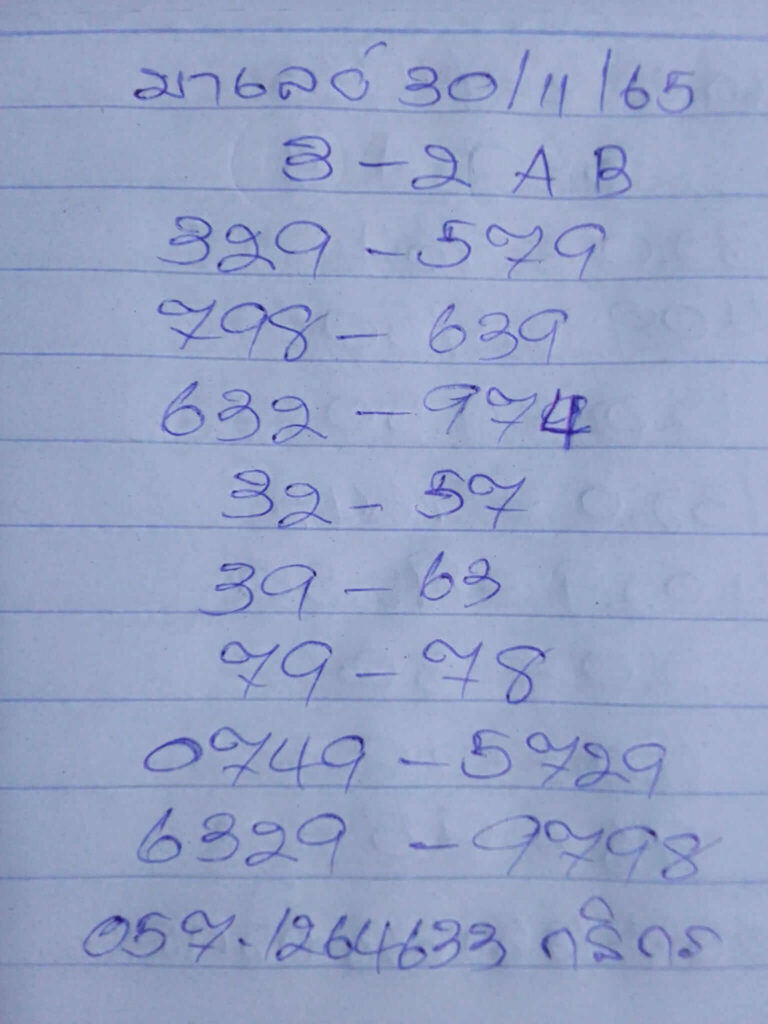 มาเลย์ 30/11/65
3-2 A B
329-579
798-639
632-974
32-57
39-63
79-78
0749-5729
6329-9798
057.1264633